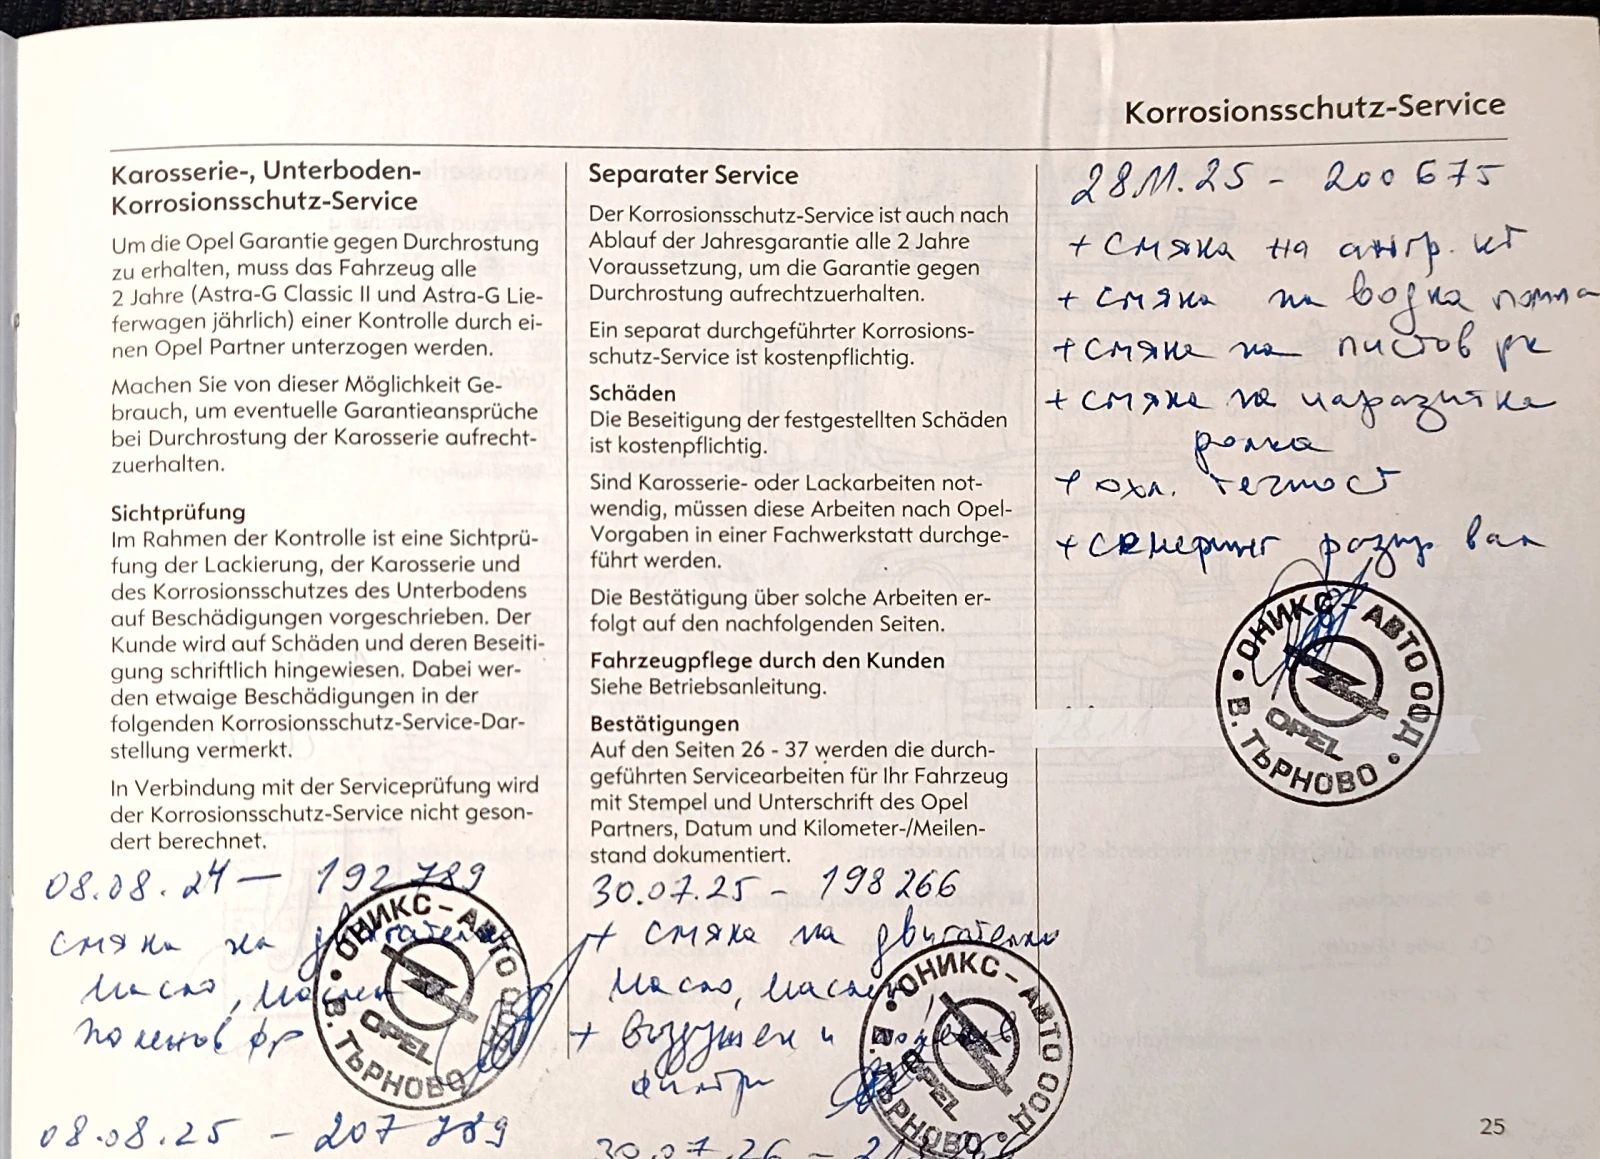 Korrosionsschutz-Service
Karosserie-, Unterboden-
Korrosionsschutz-Service
Um die Opel Garantie gegen Durchrostung
zu erhalten, muss das Fahrzeug alle
2 Jahre (Astra-G Classic II und Astra-G Lie-
ferwagen jährlich) einer Kontrolle durch ei-
nen Opel Partner unterzogen werden.
Machen Sie von dieser Möglichkeit Ge-
brauch, um eventuelle Garantieansprüche
bei Durchrostung der Karosserie aufrecht-
zuerhalten.
Sichtprüfung
Im Rahmen der Kontrolle ist eine Sichtprü-
fung der Lackierung, der Karosserie und
des Korrosionsschutzes des Unterbodens
auf Beschädigungen vorgeschrieben. Der
Kunde wird auf Schäden und deren Beseiti-
gung schriftlich hingewiesen. Dabei wer-
den etwaige Beschädigungen in der
folgenden Korrosionsschutz-Service-Dar-
stellung vermerkt.
In Verbindung mit der Serviceprüfung wird
der Korrosionsschutz-Service nicht geson-
dert berechnet.
08.08.24 — 192 789
смяна на двигателно
масло, маслен
поленов фр
ОНИКС - АВТО ООД
OPEL
В. ТЪРНОВО
08.08.25 - 207 789
Separater Service
Der Korrosionsschutz-Service ist auch nach
Ablauf der Jahresgarantie alle 2 Jahre
Voraussetzung, um die Garantie gegen
Durchrostung aufrechtzuerhalten.
Ein separat durchgeführter Korrosions-
schutz-Service ist kostenpflichtig.
Schäden
Die Beseitigung der festgestellten Schäden
ist kostenpflichtig.
Sind Karosserie- oder Lackarbeiten not-
wendig, müssen diese Arbeiten nach Opel-
Vorgaben in einer Fachwerkstatt durchge-
führt werden.
Die Bestätigung über solche Arbeiten er-
folgt auf den nachfolgenden Seiten.
Fahrzeugpflege durch den Kunden
Siehe Betriebsanleitung.
Bestätigungen
Auf den Seiten 26 - 37 werden die durch-
geführten Servicearbeiten für Ihr Fahrzeug
mit Stempel und Unterschrift des Opel
Partners, Datum und Kilometer-/Meilen-
stand dokumentiert.
30.07.25 - 198 266
+ смяна на двигателно
масло, маслен,
+ въздушен и поленов
филтри
ОНИКС - АВТО ООД
OPEL
В. ТЪРНОВО
30.07.26 -
28.11.25 - 200 675
+ смяна на ангр. кт
+ смяна на водна помпа
+ смяна на пистов рк
+ смяна на паразитна
ролка
+ охл. течност
+ семеринг разпр вал
ОНИКС - АВТО ООД
OPEL
В. ТЪРНОВО
28.11.
25